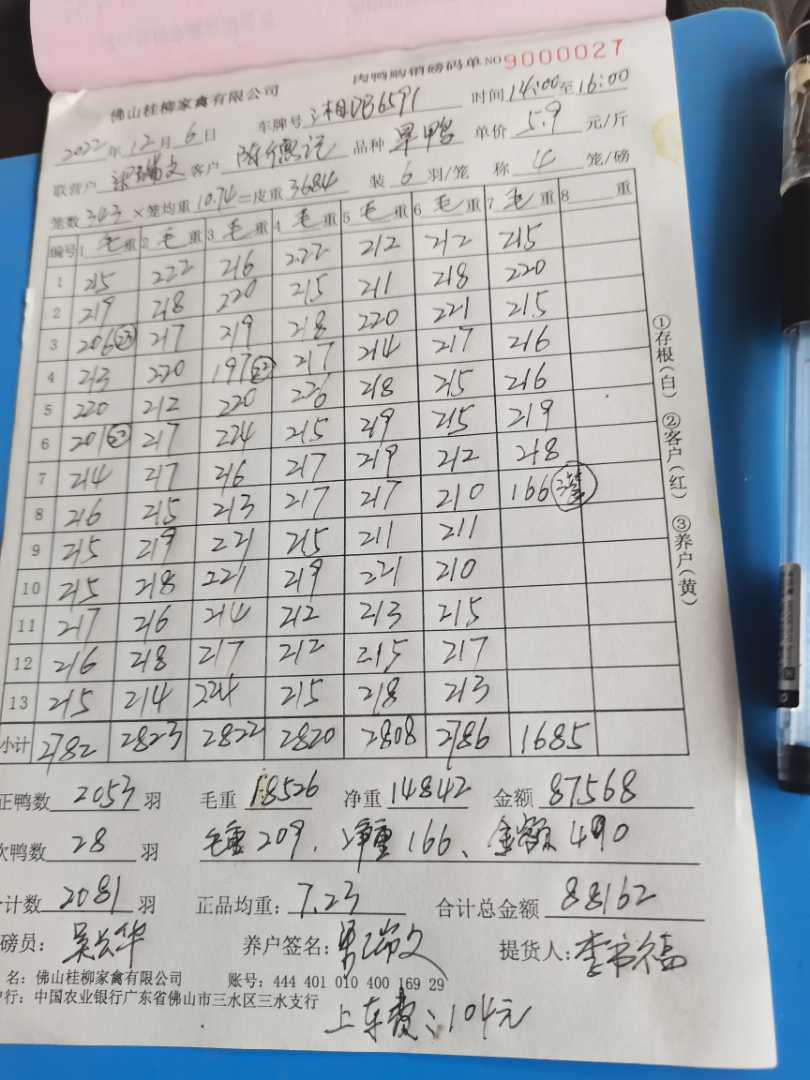 肉鸭购销磅码单 NO 9000027
佛山桂柳家禽有限公司
2022年12月6日 车牌号 湘DB6591 时间 14:00至16:00
联营户 瑞文 客户 陈德记 品种 单价 5.9 元/斤
笼数 343 ×笼均重 10.74 =皮重 3684 装 6 羽/笼 称 4 笼/磅
编号 1 毛重 2 毛重 3 毛重 4 毛重 5 毛重 6 毛重 7 毛重 8 重
1 215 222 216 222 212 212 215
2 219 218 220 215 211 218 220
3 206 217 219 218 220 221 215
4 213 220 197 217 214 217 216
5 220 212 220 226 218 215 216
6 201 217 224 215 219 215 219
7 214 217 216 217 219 212 218
8 216 215 213 217 217 210 166 3笼
9 215 219 221 215 211 211
10 215 218 221 219 221 210
11 217 216 214 212 213 215
12 216 218 217 212 215 217
13 215 214 224 215 218 213
小计 2782 2823 2822 2820 2808 2786 1685
正鸭数 2053 羽 毛重 18526 净重 14842 金额 87568
次鸭数 28 羽 毛重 209. 净重 166、金额 490
计数 2081 羽 正品均重: 7.23 合计总金额 88162
磅员: 吴华 养户签名: 瑞文 提货人: 李福
名: 佛山桂柳家禽有限公司 账号: 444 401 010 400 169 29
户行: 中国农业银行广东省佛山市三水区三水支行
上车费: 104元
①存根(白) ②客户(红) ③养户(黄)